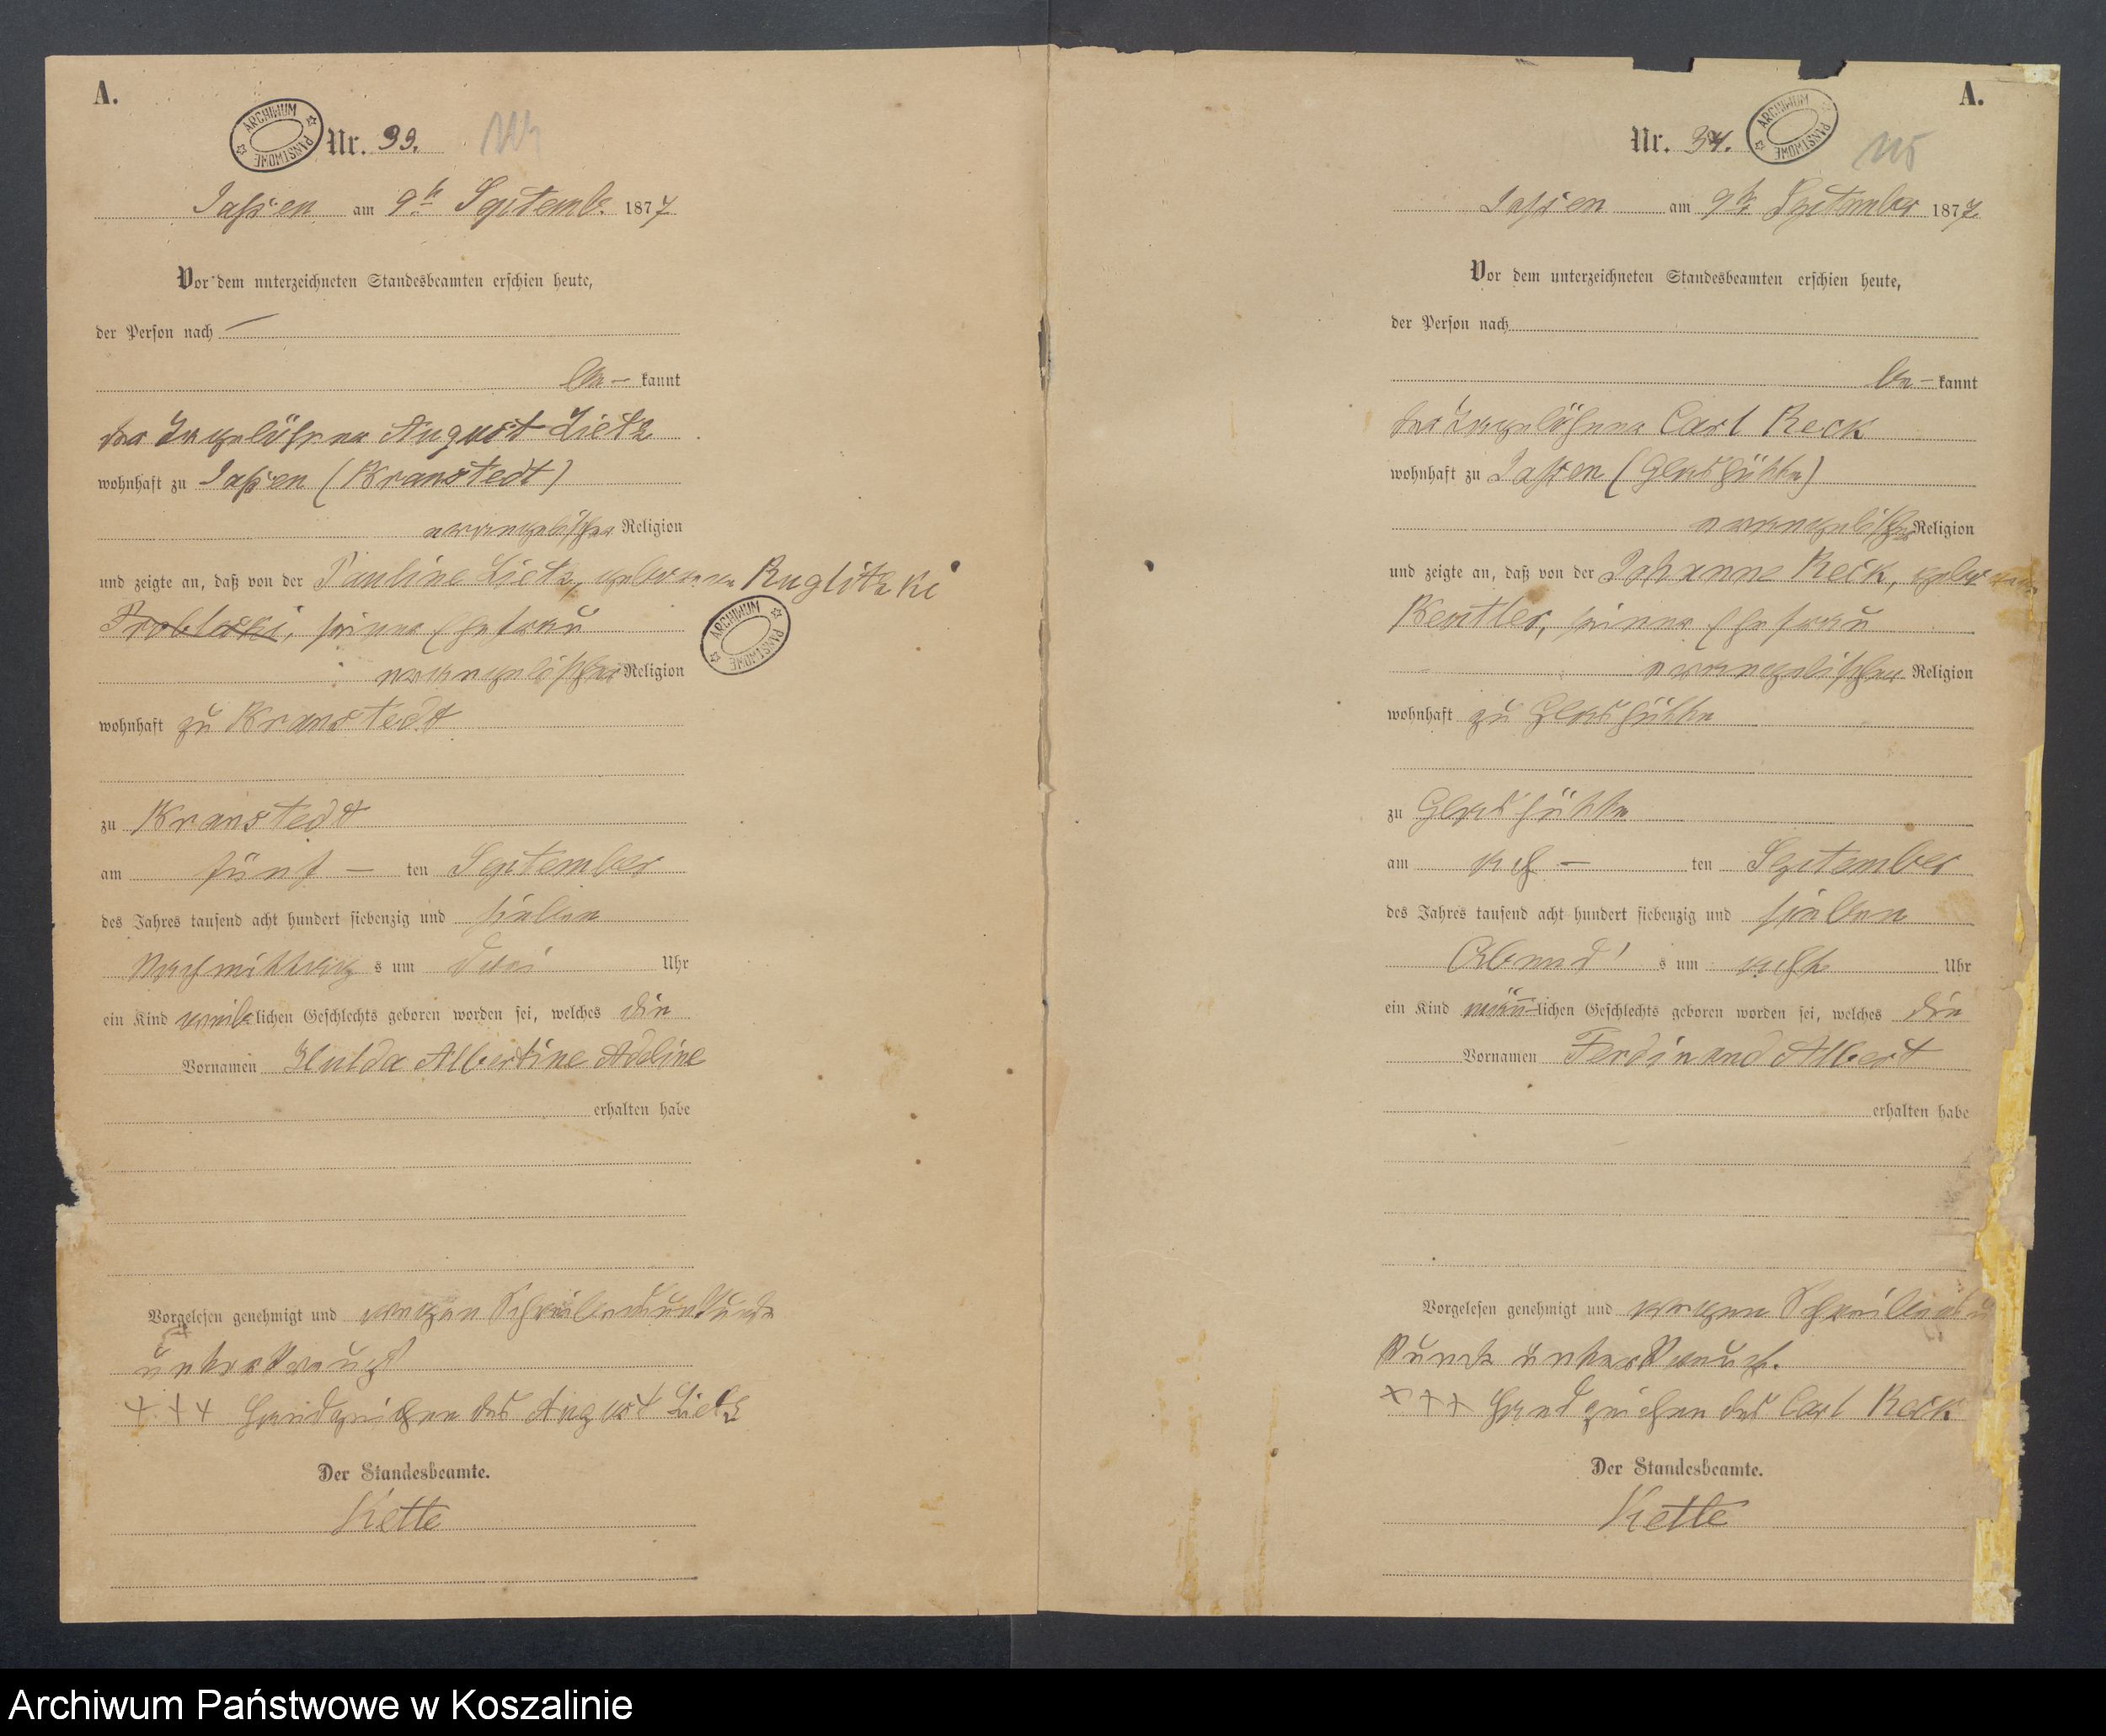 A.
ARCHIWUM PAŃSTWOWE
Nr. 33.
114
Jassen am 9ten Septemb. 1877
Vor dem unterzeichneten Standesbeamten erschien heute,
der Person nach —
be- kannt
der Tagelöhner August Lietz
wohnhaft zu Jassen (Kranstedt)
evangelischer Religion
und zeigte an, daß von der Pauline Lietz, geborenen Ruglitzki
seiner Ehefrau
ARCHIWUM PAŃSTWOWE
evangelischer Religion
wohnhaft zu Kranstedt
zu Kranstedt
am fünf — ten September
des Jahres tausend acht hundert siebenzig und sieben
Nachmittags um drei Uhr
ein Kind weiblichen Geschlechts geboren worden sei, welches die
Vornamen Hulda Albertine Adeline
erhalten habe
Vorgelesen genehmigt und wegen Schreibensunkunde
unterkreuzt
+++ Handzeichen des August Lietz
Der Standesbeamte.
Kette
A.
Nr. 34.
ARCHIWUM PAŃSTWOWE
115
Jassen am 9ten September 1877
Vor dem unterzeichneten Standesbeamten erschien heute,
der Person nach
be- kannt
der Tagelöhner Carl Reck
wohnhaft zu Jassen (Glashütte)
evangelischer Religion
und zeigte an, daß von der Johanne Reck, geborenen
Kentler, seiner Ehefrau
evangelischer Religion
wohnhaft zu Glashütte
zu Glashütte
am ach — ten September
des Jahres tausend acht hundert siebenzig und sieben
Abend's um acht Uhr
ein Kind männ-lichen Geschlechts geboren worden sei, welches die
Vornamen Ferdinand Albert
erhalten habe
Vorgelesen genehmigt und wegen Schreibensun
kunde unterkreuzt.
+++ Handzeichen des Carl Reck
Der Standesbeamte.
Kette
Archiwum Państwowe w Koszalinie